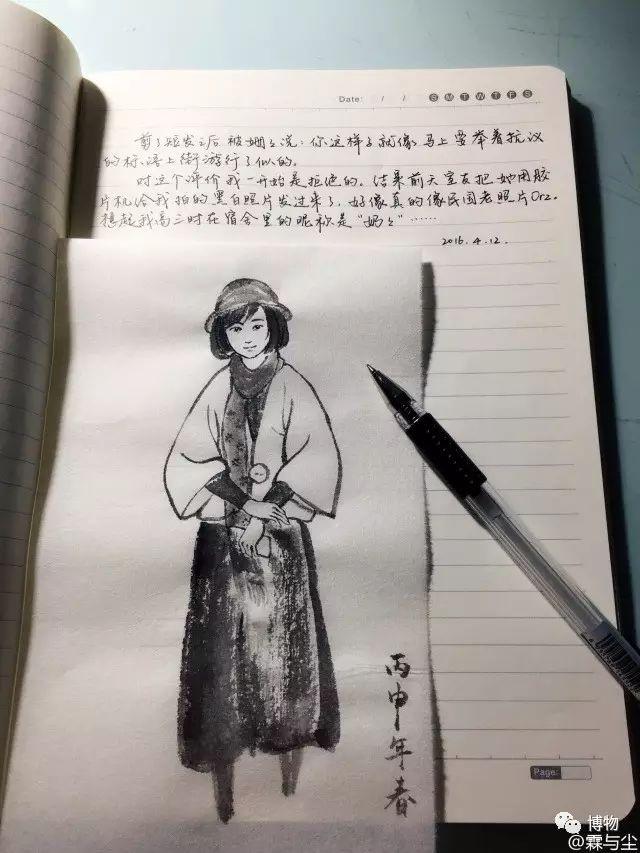 Date: / / S M T W T F S
剪了短发之后被姗姗说:你这样子就像马上要举着抗议
的标语上街游行了似的。
对这个评价我一开始是拒绝的。结果前天室友把她用胶
片机给我拍的黑白照片发过来了,好像真的像民国老照片Orz.
想起我高三时在宿舍里的昵称是“奶々”……
2016.4.12.
丙申年春
Page:
博物
@霖与尘